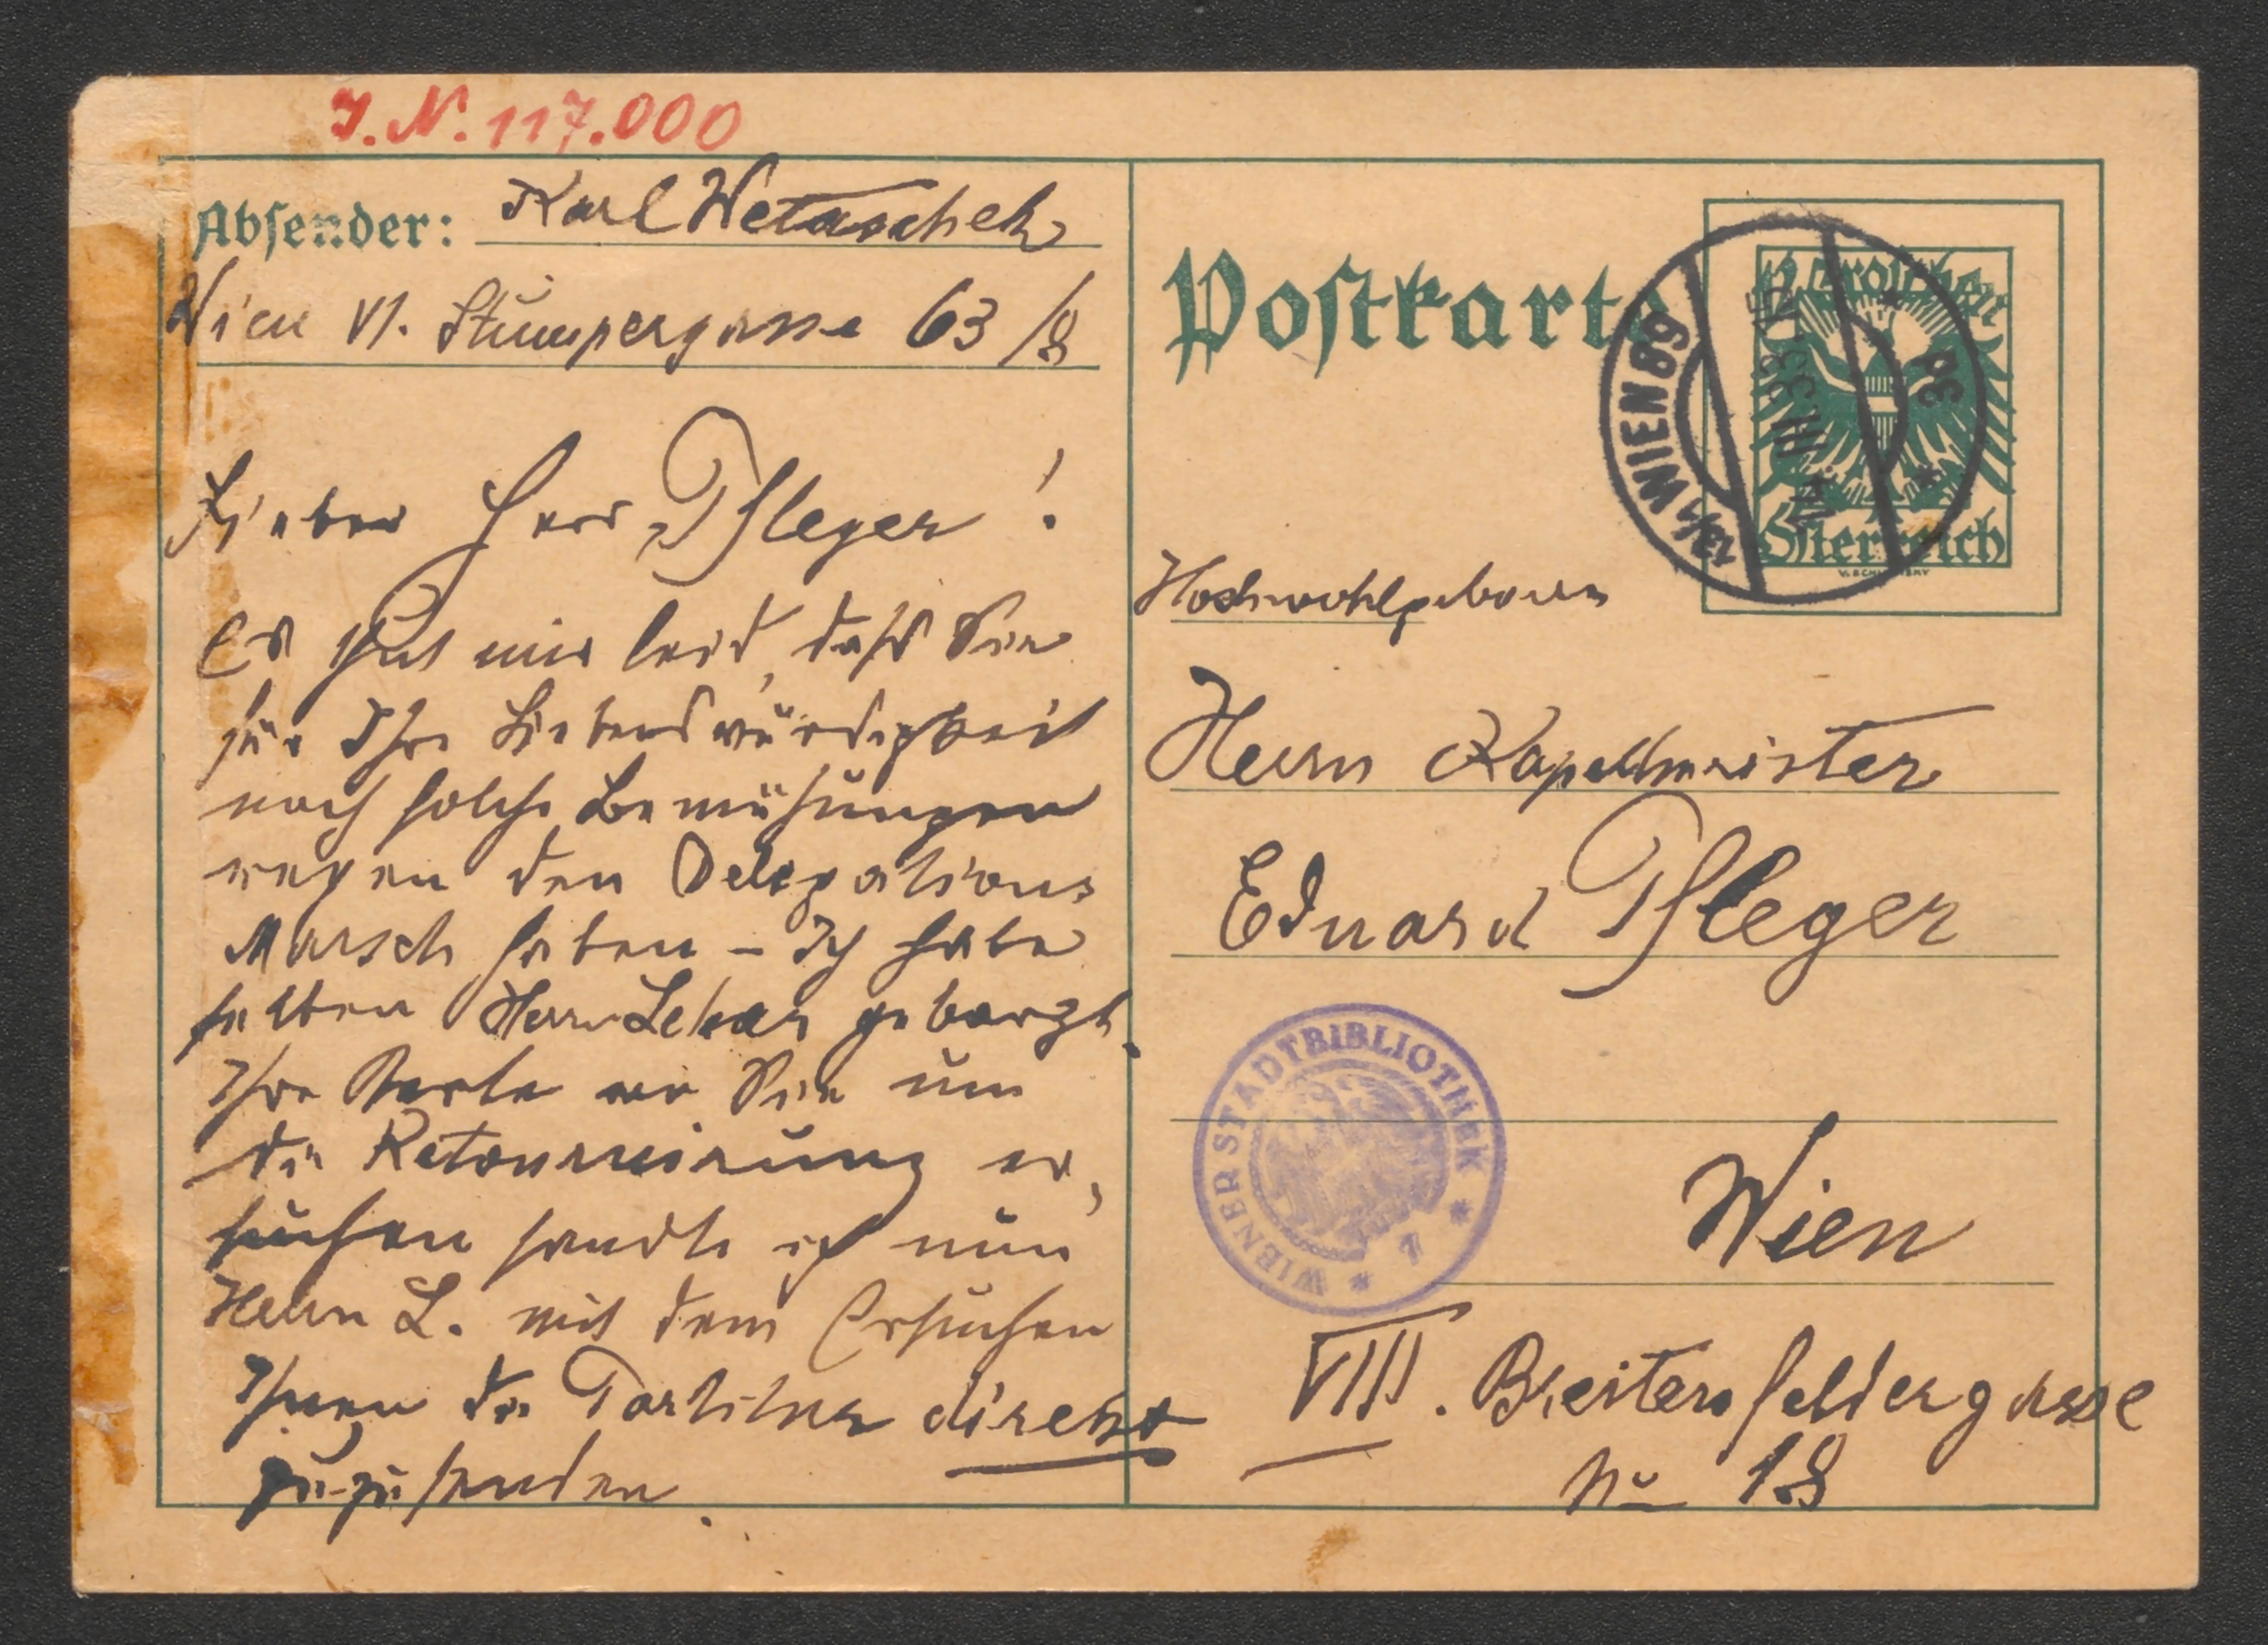 J. N. 117.000
Absender: Karl Wetaschek
Wien VI. Stumpergasse 63/8
Lieber Herr Pfleger!
Es thut mir leid, dass Sie
für Ihre Liebenswürdigkeit
noch solche Bemühungen
wegen den Delegations
Marsch haben – Ich habe
selben Herrn Lehar geborgt.
Ihre Karte wo Sie um
die Retournierung er,
suchen sandte ich nun
Herrn L. mit dem Ersuchen
Ihnen die Partitur direkt
zu-zusenden.
Postkarte
12 Groschen
Österreich
13/1 WIEN 89
14. III. 33. 15
* 3d *
Hochwohlgeboren
Herrn Kapellmeister
Eduard Pfleger
WIENER STADTBIBLIOTHEK * 7 *
Wien
VIII. Breitenfeldergasse
No 18